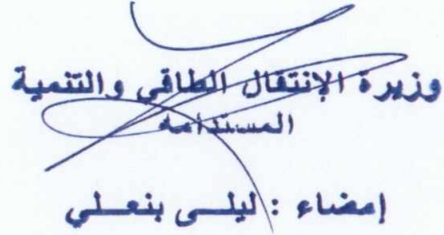 وزيرة الإنتقال الطاقي والتنمية
المستدامة
إمضاء : ليلى بنعلي